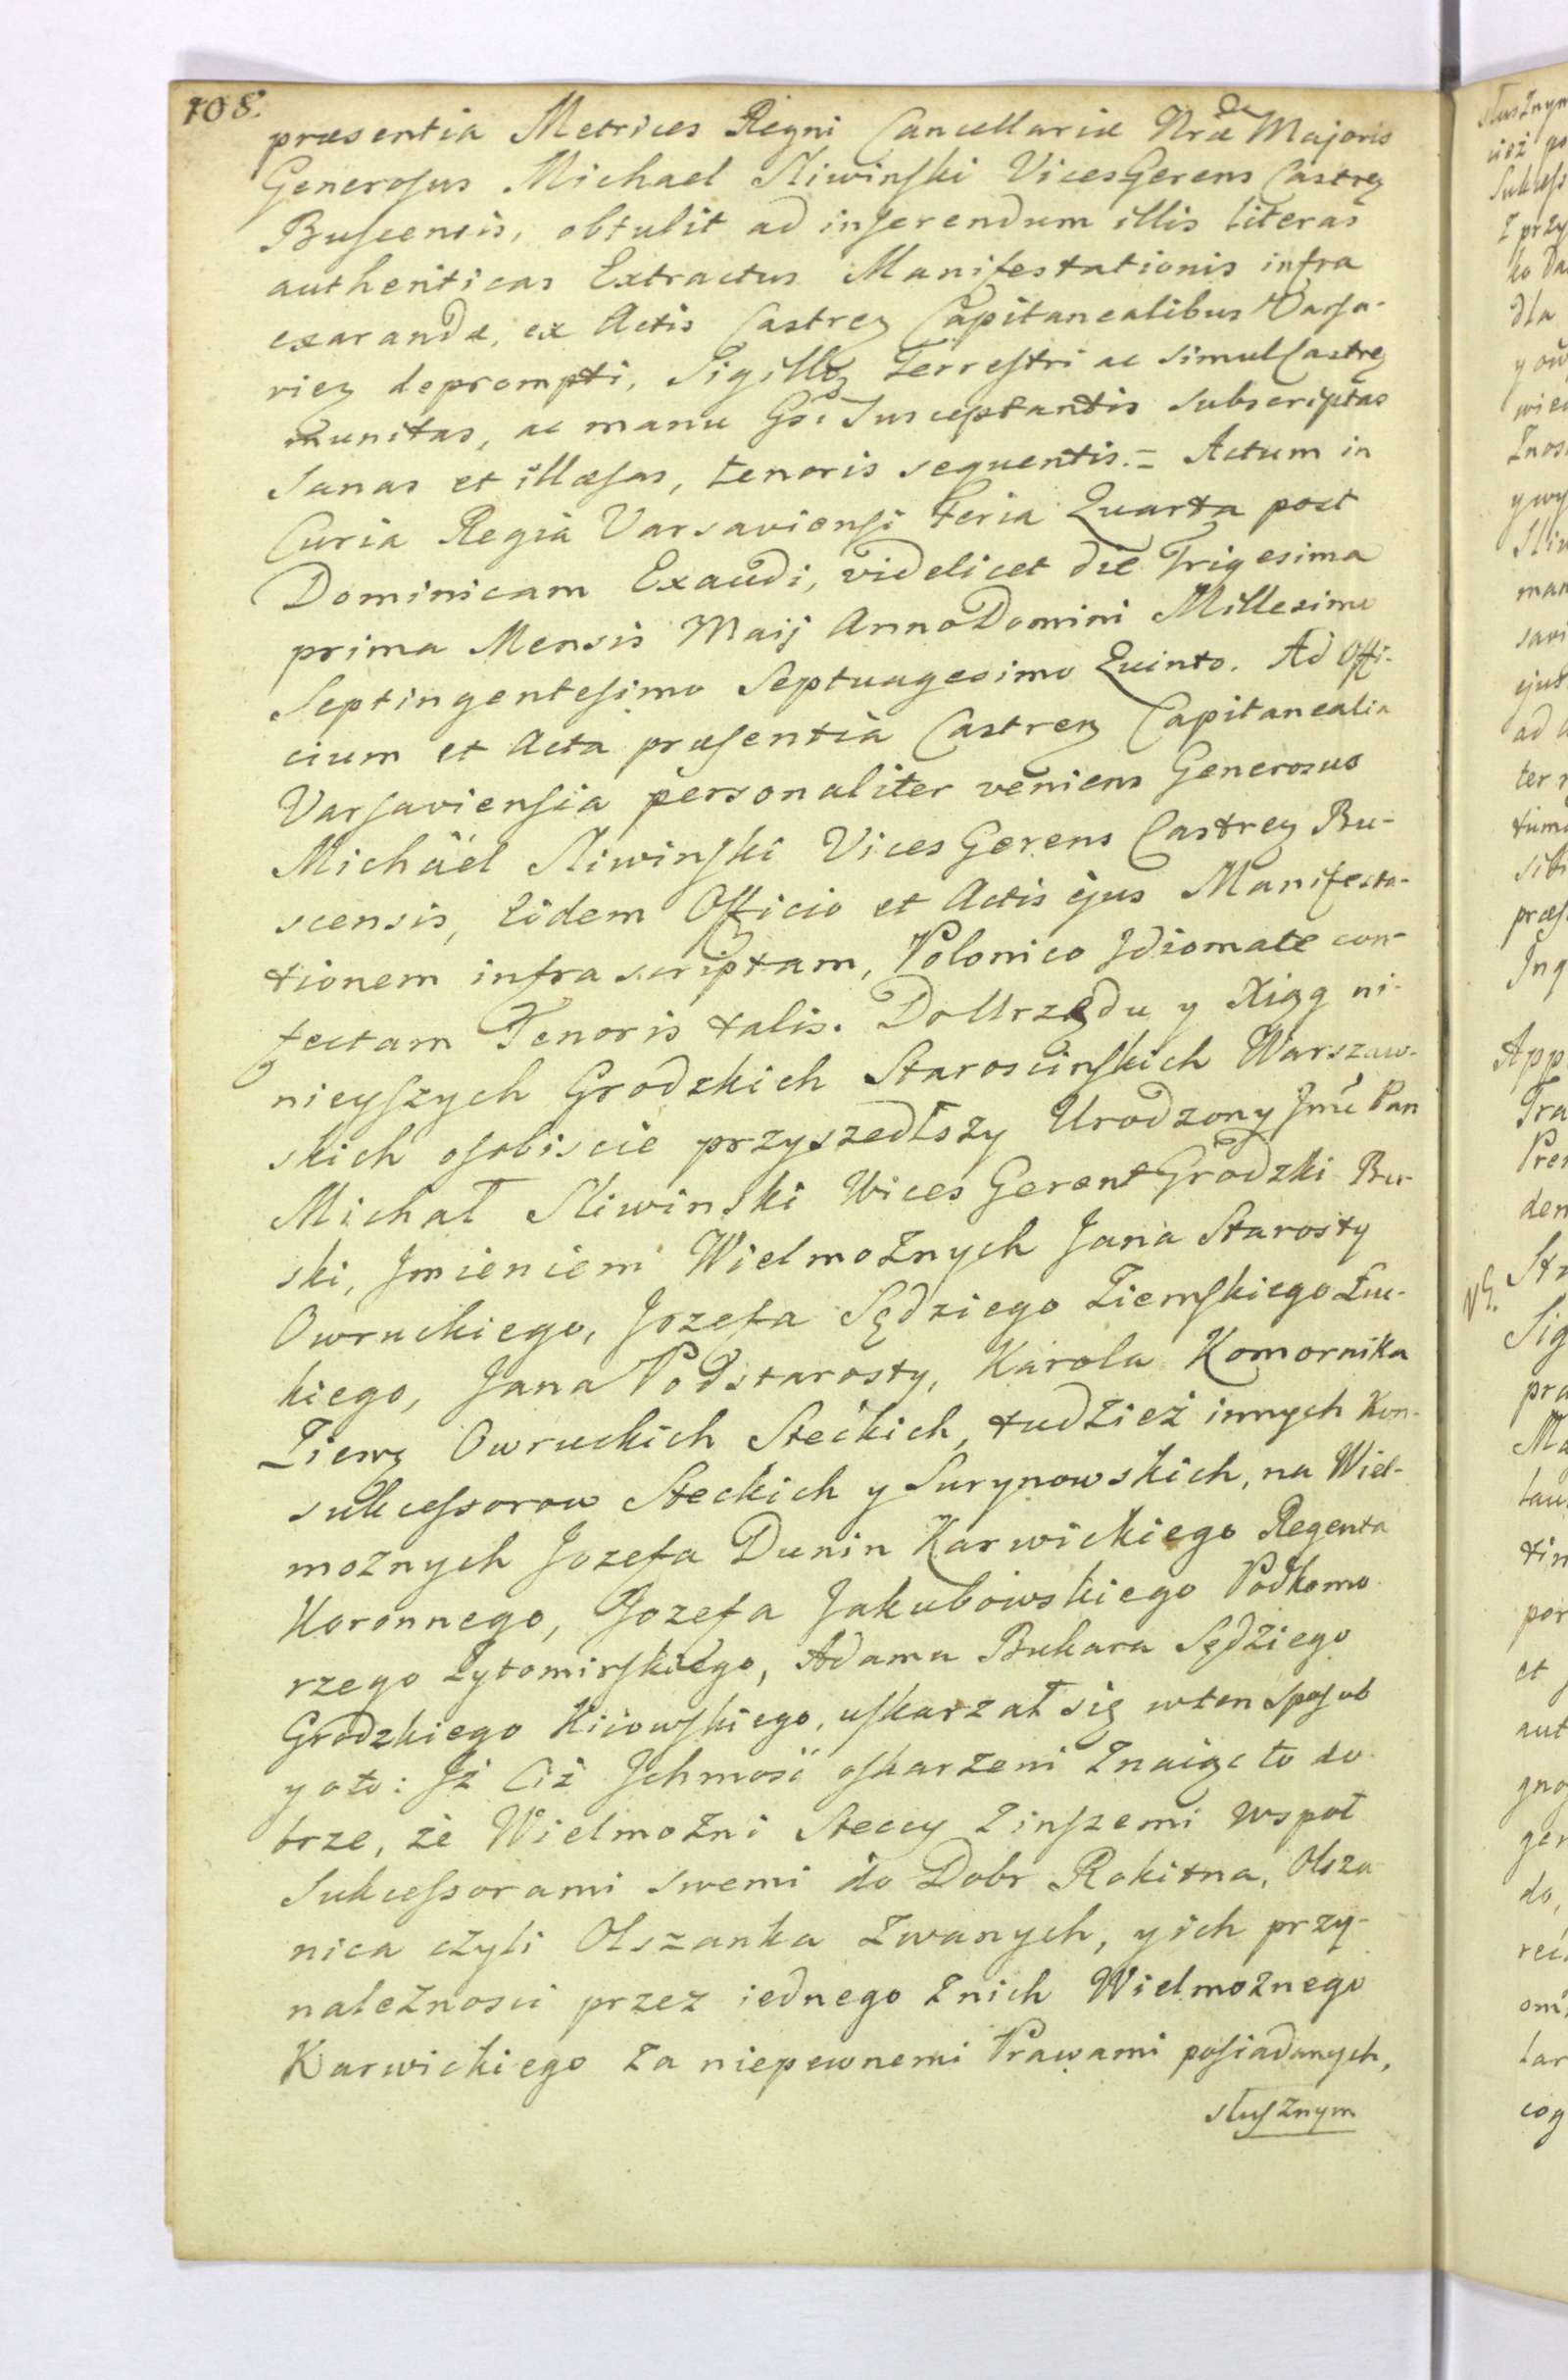 108.
præsentia Metrices Regni Cancellariæ Nræ Majoris
Generosus Michael Sliwinski VicesGerens Castreñ
Buscensis, obtulit ad inserendum illis literas
authenticas Extractus Manifestationis infra
exarandæ, ex Actis Castreñ Capitanealibus Varsa-
vieñ deprompti, Sigillo Terrestri ac simul Castreñ
munitas, ac manu Gsi Susceptantis subscriptas
sanas et illæsas, tenoris sequentis. = Actum in
Curia Regia Varsaviensi Feria Quarta post
Dominicam Exaudi, videlicet die Trigesima
prima Mensis Maij Anno Domini Millesimo
Septingentesimo Septuagesimo Quinto. Ad Offi-
cium et Acta præsentia Castreñ Capitanealia
Varsaviensia personaliter veniens Generosus
Michäel Sliwinski Vices Gerens Castreñ Bu-
scensis, Eidem Officio et Actis ejus Manifesta-
tionem infra scriptam, Polonico Idiomate con-
fectam Tenoris talis. Do Urzędu y Xiąg ni-
nieyszych Grodzkich Staroscinskich Warszaw-
skich osobiscie przyszedłszy Urodzony Jmć Pan
Michał Sliwinski Wices Gerent Grodzki Bu-
ski, Jmieniem Wielmożnych Jana Starosty
Owruckiego, Jozefa Sędziego Ziemskiego Łuc-
kiego, Jana Podstarosty, Karola Komornika
Ziemz Owruckich Steckich, tudzież innych Kon-
sukcessorow Steckich y Surynowskich, na Wiel-
możnych Jozefa Dunin Karwickiego Regenta
Koronnego, Jozefa Jakubowskiego Podkomo-
rzego Zytomirskiego, Adama Bukara Sędziego
Grodzkiego Kiiowskiego, uskarzał się w ten sposob
y oto: Jż Ciż Jchmość oskarżeni znaiąc to do-
brze, że Wielmożni Steccy z inszemi wspoł
Sukcessorami swemi do Dobr Rokitna, Olsza
nica czyli Olszanka zwanych, y ich przy-
należnosci przez iednego z nich Wielmożnego
Karwickiego za niepewnemi Prawami posiadanych,
słusznym